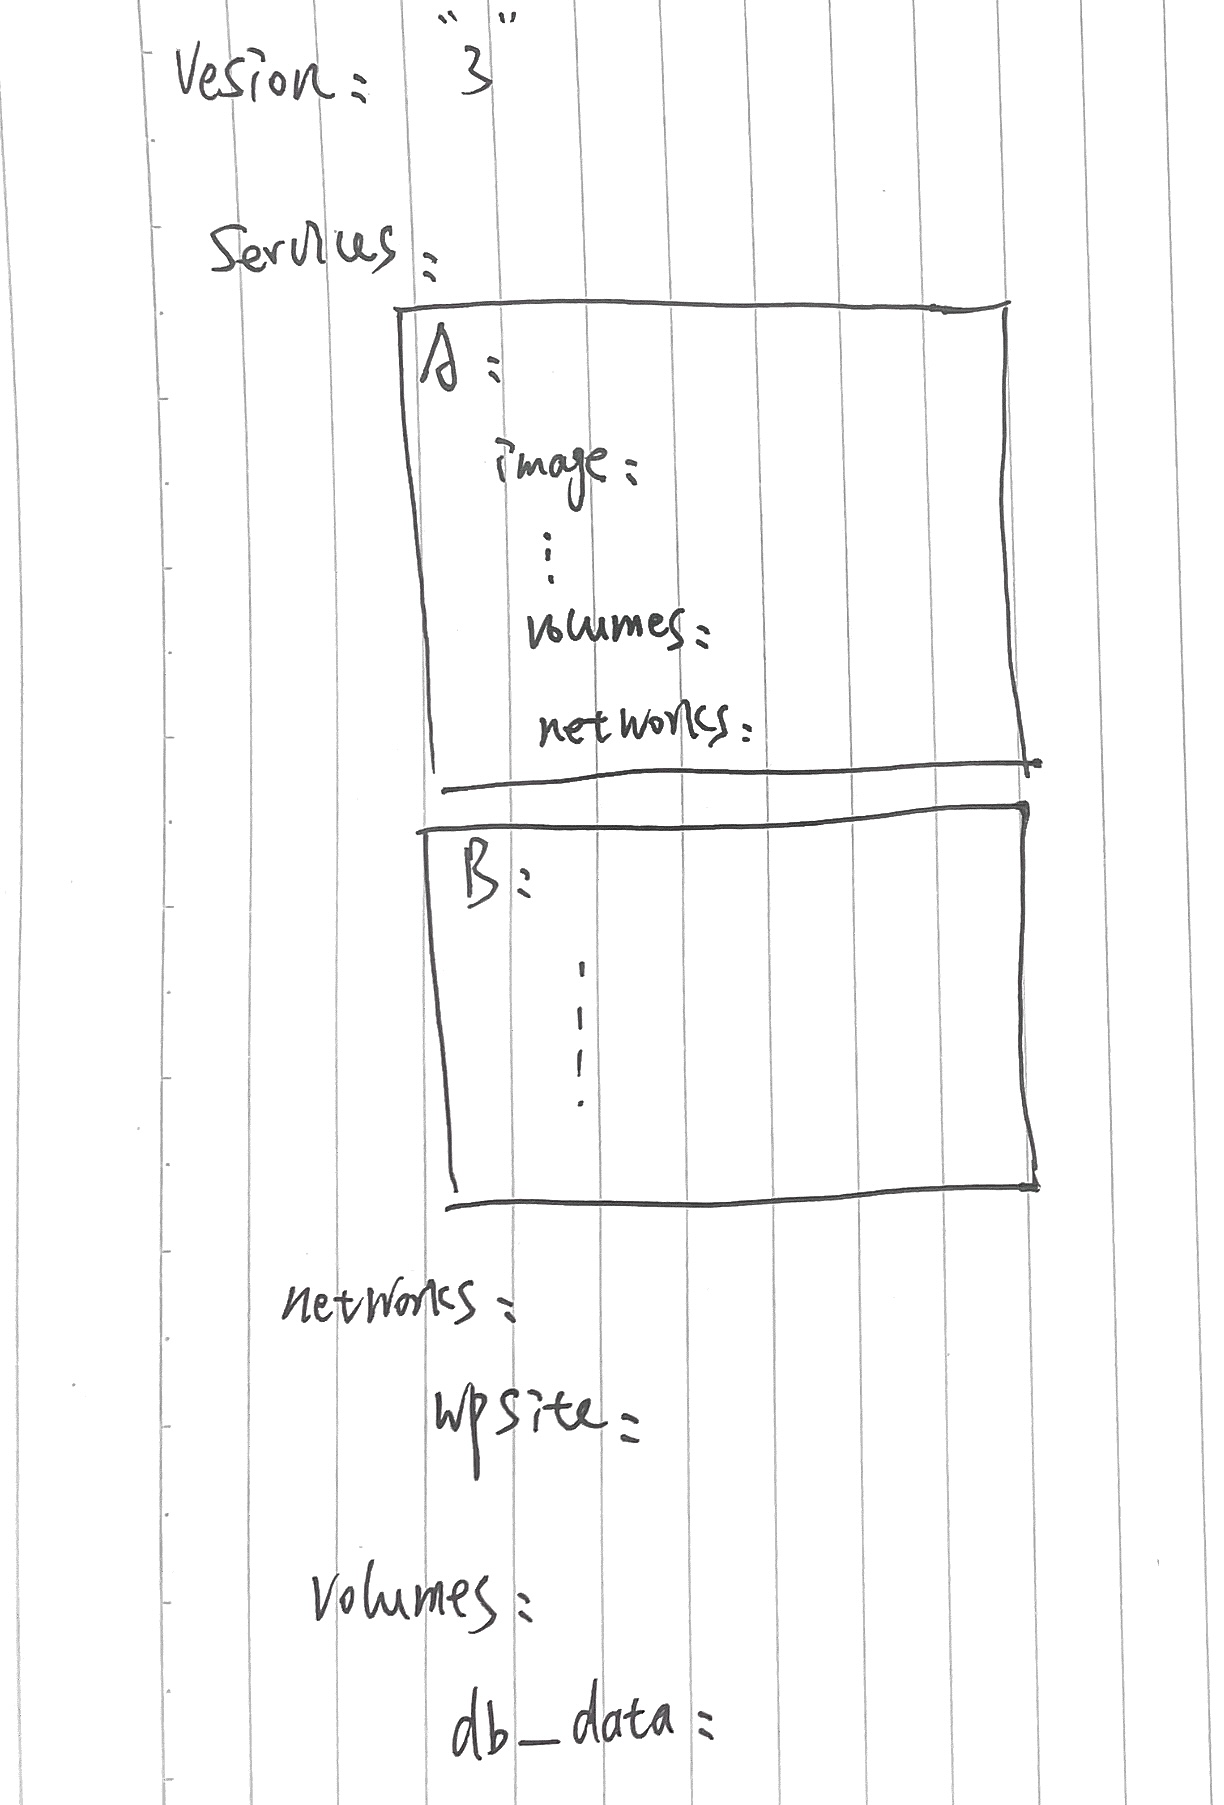 Vesion: "3"
Services:
A:
image:
⋮
volumes:
networks:
B:
⋮
networks:
wpsite:
volumes:
db_data: